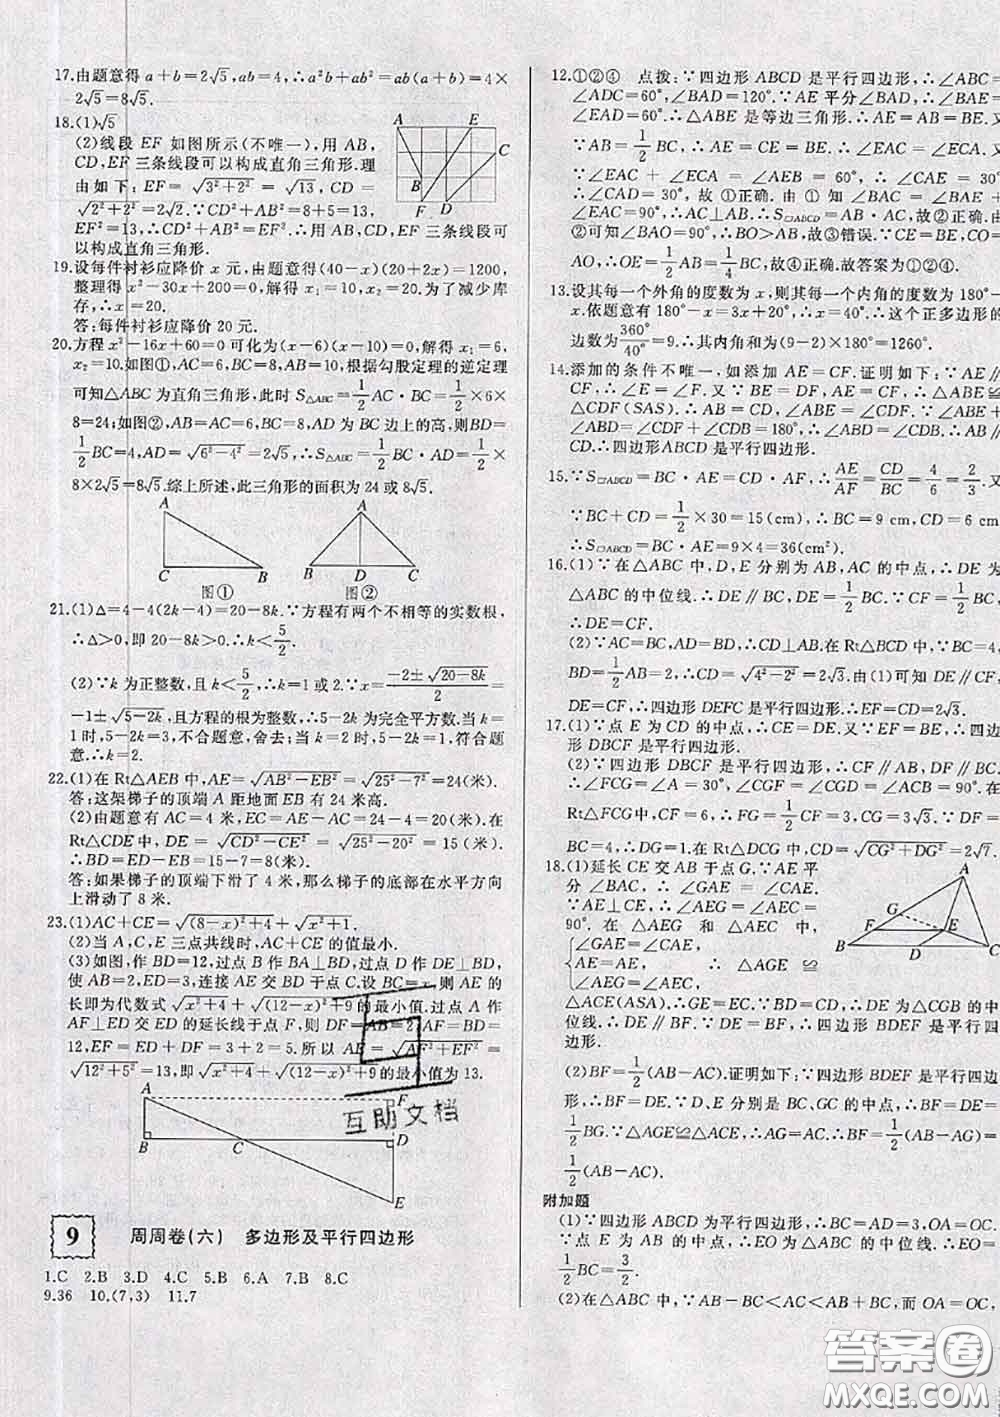 17.由题意得a+b=2√5,ab=4,∴a²b+ab²=ab(a+b)=4×
2√5=8√5.
18.(1)√5
(2)线段 EF 如图所示(不唯一),用 AB,
CD,EF 三条线段可以构成直角三角形.理
由如下:EF=√(3²+2²)=√13,CD=
√(2²+2²)=2√2.∵CD²+AB²=8+5=13,
EF²=13,∴CD²+AB²=EF².∴用 AB,CD,EF三条线段可
以构成直角三角形.
A E C B F D
19.设每件衬衫应降价 x 元,由题意得(40-x)(20+2x)=1200,
整理得 x²-30x+200=0,解得 x₁=10,x₂=20.为了减少库
存,∴x=20.
答:每件衬衫应降价 20 元.
20.方程x²-16x+60=0可化为(x-6)(x-10)=0,解得 x₁=6,
x₂=10.如图①,AC=6,BC=8,AB=10,根据勾股定理的逆定理
可知△ABC为直角三角形,此时 S△ABC=1/2 AC·BC=1/2×6×
8=24;如图②,AB=AC=6,BC=8,AD 为 BC 边上的高,则BD=
1/2 BC=4,AD=√(6²-4²)=2√5,∴S△ABC=1/2 BC·AD=1/2×
8×2√5=8√5.综上所述,此三角形的面积为 24 或 8√5.
A C B 图① A B D C 图②
21.(1)△=4-4(2k-4)=20-8k.∵方程有两个不相等的实数根,
∴△>0,即 20-8k>0,∴k<5/2.
(2)∵k为正整数,且 k<5/2,∴k=1或2.∵x=(-2±√(20-8k))/2=
-1±√(5-2k),且方程的根为整数,∴5-2k为完全平方数.当 k=
1时,5-2k=3,不合题意,舍去;当 k=2时,5-2k=1,符合题
意.∴k=2.
22.(1)在 Rt△AEB 中,AE=√(AB²-EB²)=√(25²-7²)=24(米).
答:这架梯子的顶端 A 距地面 EB 有 24 米高.
(2)由题意有 AC=4 米,EC=AE-AC=24-4=20(米).在
Rt△CDE 中,DE=√(CD²-CE²)=√(25²-20²)=15(米).
∴BD=ED-EB=15-7=8(米).
答:如果梯子的顶端下滑了 4 米,那么梯子的底部在水平方向
上滑动了 8 米.
23.(1)AC+CE=√((8-x)²+4)+√(x²+1).
(2)当 A,C,E 三点共线时,AC+CE 的值最小.
(3)如图,作 BD=12,过点 B 作 BA⊥BD,过点 D 作 DE⊥BD,
使 AB=2,ED=3,连接 AE 交 BD 于点 C.设 BC=x,则 AE 的
长即为代数式 √(x²+4)+√((12-x)²+9)的最小值.过点 A 作
AF⊥ED 交 ED 的延长线于点 F,则 DF=AB=2,AF=BD=
12,EF=ED+DF=3+2=5.所以 AE=√(AF²+EF²)=
√(12²+5²)=13,即√(x²+4)+√((12-x)²+9)的最小值为 13.
A F B C D E
互助文档
9 周周卷(六) 多边形及平行四边形
1.C 2.B 3.D 4.C 5.B 6.A 7.B 8.C
9.36 10.(7,3) 11.7
12.①②④ 点拨:∵四边形 ABCD 是平行四边形,∴∠ABC=
∠ADC=60°,∠BAD=120°.∵AE 平分∠BAD,∴∠BAE=
∠EAD=60°.∴△ABE 是等边三角形.∴AE=AB=BE.
∵AB=1/2 BC,∴AE=CE=BE.∴∠EAC=∠ECA.
∵∠EAC+∠ECA=∠AEB=60°,∴∠CAE=30°.
∴∠CAD=30°,故①正确.由①知∠BAC=∠BAE+
∠EAC=90°,∴AC⊥AB.∴S▱ABCD=AB·AC,故②正确.由
②可知∠BAO=90°,∴BO>AB,故③错误.∵CE=BE,CO=
AO,∴OE=1/2 AB=1/4 BC,故④正确.故答案为①②④.
13.设其每一个外角的度数为 x,则其每一个内角的度数为 180°-
x.依题意有 180°-x=3x+20°,∴x=40°,∴这个正多边形的
边数为360°/40°=9.∴其内角和为(9-2)×180°=1260°.
14.添加的条件不唯一,如添加 AE=CF.证明如下:∵AE∥
CF,∴∠E=∠F.又∵BE=DF,AE=CF,∴△ABE≌
△CDF(SAS).∴AB=CD,∠ABE=∠CDF.∵∠ABE+
∠ABD=∠CDF+∠CDB=180°,∴∠ABD=∠CDB.∴AB∥
CD.∴四边形ABCD是平行四边形.
15.∵S▱ABCD=BC·AE=CD·AF,∴AE/AF=CD/BC=4/6=2/3.又
∵BC+CD=1/2×30=15(cm),∴BC=9 cm,CD=6 cm.
∴S▱ABCD=BC·AE=9×4=36(cm²).
16.(1)∵在△ABC 中,D,E 分别为 AB,AC 的中点,∴DE 为
△ABC的中位线.∴DE=1/2 BC.∵CF=1/2 BC,
∴DE=CF.
(2)∵AC=BC,AD=BD,∴CD⊥AB.在Rt△BCD中,BC=4,
BD=1/2 AB=2,∴CD=√(4²-2²)=2√3.由(1)可知 DE∥CF,
DE=CF,∴四边形 DEFC 是平行四边形.∴EF=CD=2√3.
17.(1)∵点 E 为 CD 的中点,∴CE=DE.又∵EF=BE,∴四边
形 DBCF 是平行四边形.
(2)∵四边形 DBCF 是平行四边形,∴CF∥AB,DF∥BC.
∴∠FCG=∠A=30°,∠CGF=∠CGD=∠ACB=90°.在
Rt△FCG中,CF=6,∴FG=1/2 CF=3,CG=3√3.∵DF=
BC=4,∴DG=1.在 Rt△DCG 中,CD=√(CG²+DG²)=2√7.
18.(1)延长 CE 交 AB 于点 G.∵AE 平
分∠BAC,∴∠GAE=∠CAE.
∵AE⊥CE,∴∠AEG=∠AEC=
90°.在△AEG 和△AEC 中,
∠GAE=∠CAE,
AE=AE, ∴△AGE≌
∠AEG=∠AEC,
△ACE(ASA).∴GE=EC.∵BD=CD,∴DE为△CGB的中
位线.∴DE∥BF.∵DE=BF,∴四边形 BDEF 是平行四
边形.
A G F E B D C
(2)BF=1/2(AB-AC).证明如下:∵四边形 BDEF 是平行四边
形,∴BF=DE.∵D、E 分别是 BC、GC 的中点,∴BF=DE=
1/2 BG.∵△AGE≌△ACE,∴AG=AC.∴BF=1/2(AB-AG)=
1/2(AB-AC).
附加题
(1)∵四边形 ABCD 为平行四边形,∴AD=BC=3,OA=OC.
∵点 E 为 AB 的中点,∴EO 为△ABC 的中位线.∴EO=
1/2 BC=3/2.
(2)在△ABC 中,∵AB-BC<AC<AB+BC,而 OA=OC,
答案圈
MXQE.COM